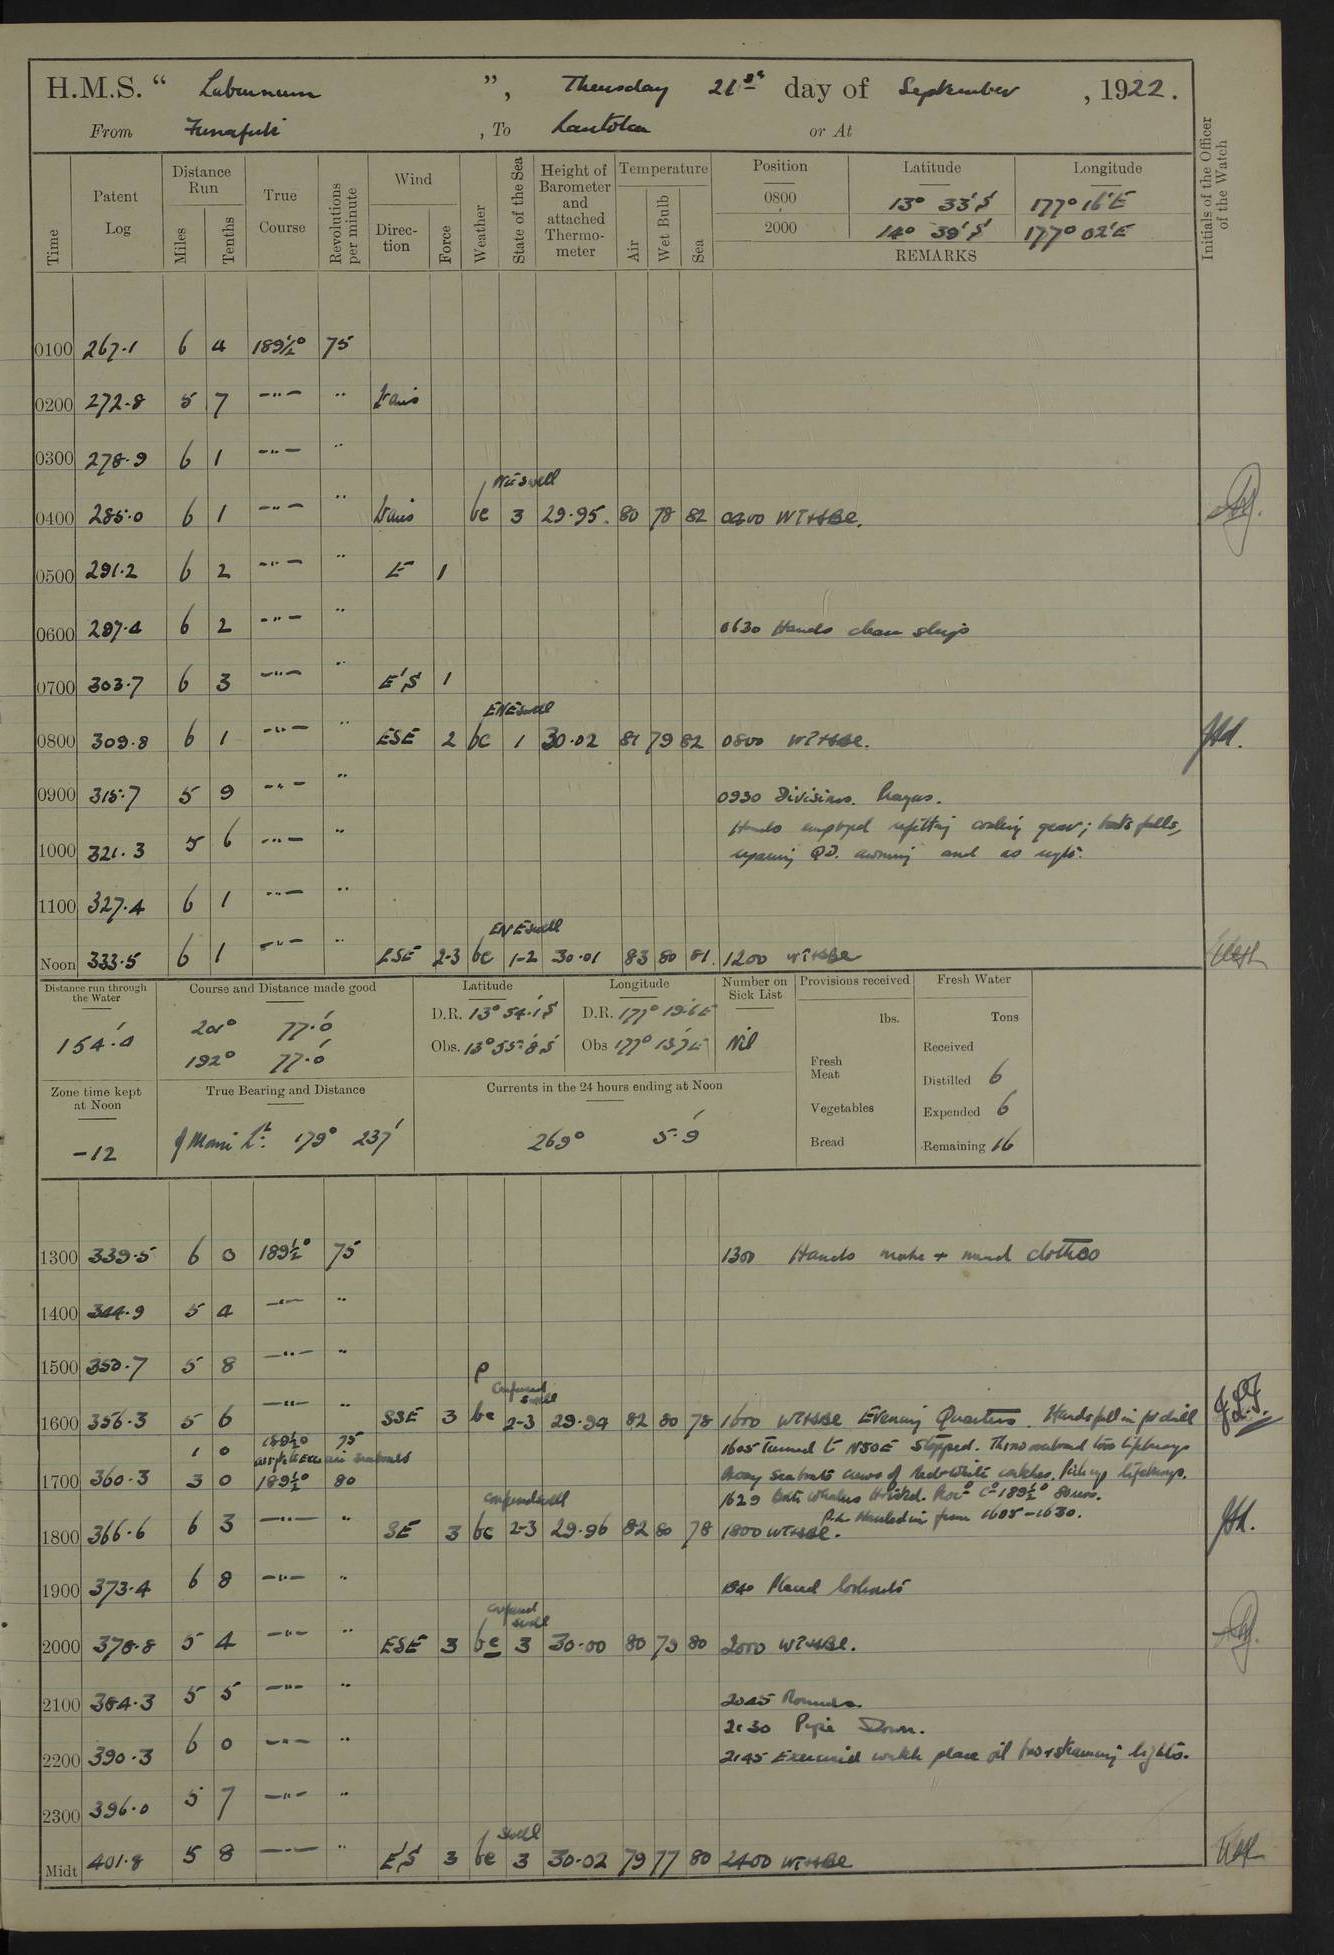 H.M.S. “ Laburnum ”, Thursday 21st day of September, 1922.
From Funafuti, To Lautoka or At
Time
Patent Log
Distance Run
Miles
Tenths
True Course
Revolutions per minute
Wind
Direction
Force
Weather
State of the Sea
Height of Barometer and attached Thermometer
Temperature
Air
Wet Bulb
Sea
Position Latitude Longitude
0800 13° 33' S 177° 16' E
2000 14° 39' S 177° 02' E
REMARKS
Initials of the Officer of the Watch
0100 267.1 6 4 189½° 75
0200 272.8 5 7 —"— " Vars
0300 278.9 6 1 —"— "
NE swell
0400 285.0 6 1 —"— " Vars bc 3 29.95 80 78 82 0400 WT+SBE.
0500 291.2 6 2 —"— " E 1
0600 297.4 6 2 —"— " 0630 Hands clean ship
0700 303.7 6 3 —"— " E'S 1
ENE swell
0800 309.8 6 1 —"— " ESE 2 bc 1 30.02 81 79 82 0800 WT+SBE.
0900 315.7 5 9 —"— " 0930 Divisions. Prayers.
Hands employed refitting coaling gear; boats falls,
1000 321.3 5 6 —"— " repairing QD. awning and as reqte.
1100 327.4 6 1 —"— "
ENE swell
Noon 333.5 6 1 —"— " ESE 2-3 bc 1-2 30.01 83 80 81 1200 WT+SBE
Distance run through the Water
154'.4
Course and Distance made good
201° 77'.0
192° 77'.0
Latitude
D.R. 13° 54'.1 S
Obs. 13° 55'.8 S
Longitude
D.R. 177° 19'.6 E
Obs 177° 13'.7 E
Number on Sick List
Nil
Provisions received
lbs.
Fresh Meat
Vegetables
Bread
Fresh Water
Tons
Received
Distilled 6
Expended 6
Remaining 16
Zone time kept at Noon
-12
True Bearing and Distance
179° 237'
Currents in the 24 hours ending at Noon
269° 5'.9
1300 339.5 6 0 189½° 75 1300 Hands make + mend clothes
1400 344.9 5 4 —"— "
1500 350.7 5 8 —"— "
p
Confused swell
1600 356.3 5 6 —"— " SSE 3 bc 2-3 29.94 82 80 78 1600 WT+SBE Evening Quarters. Hands fell in for drill
1 0 189½° 75 1605 Turned to N50E Stopped. Threw overboard two lifebuoys
1700 360.3 3 0 189½° 80 Away seaboats crews of Red+White watches. Pick up lifebuoys.
1629 Both Whalers Hoisted. Proc° C° 189½° 80 revs.
P.L. Hauled in from 1605-1630.
confused swell
1800 366.6 6 3 —"— " SE 3 bc 2-3 29.96 82 80 78 1800 WT+SBE.
1900 373.4 6 8 —"— " 1840 Placed lookouts
confused swell
2000 378.8 5 4 —"— " ESE 3 bc 3 30.00 80 79 80 2000 WT+SBE.
2100 384.3 5 5 —"— " 2045 Rounds.
2130 Pipe Down.
2200 390.3 6 0 —"— " 2145 Exercised watch place oil bow+steaming lights.
2300 396.0 5 7 —"— "
swell
Midt 401.8 5 8 —"— " E'S 3 bc 3 30.02 79 77 80 2400 WT+SBE